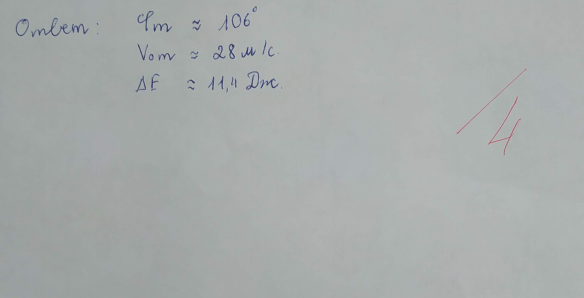 Ответ: φm ≈ 106°
Vom ≈ 28 м/с.
ΔE ≈ 11,4 Дж.
/4